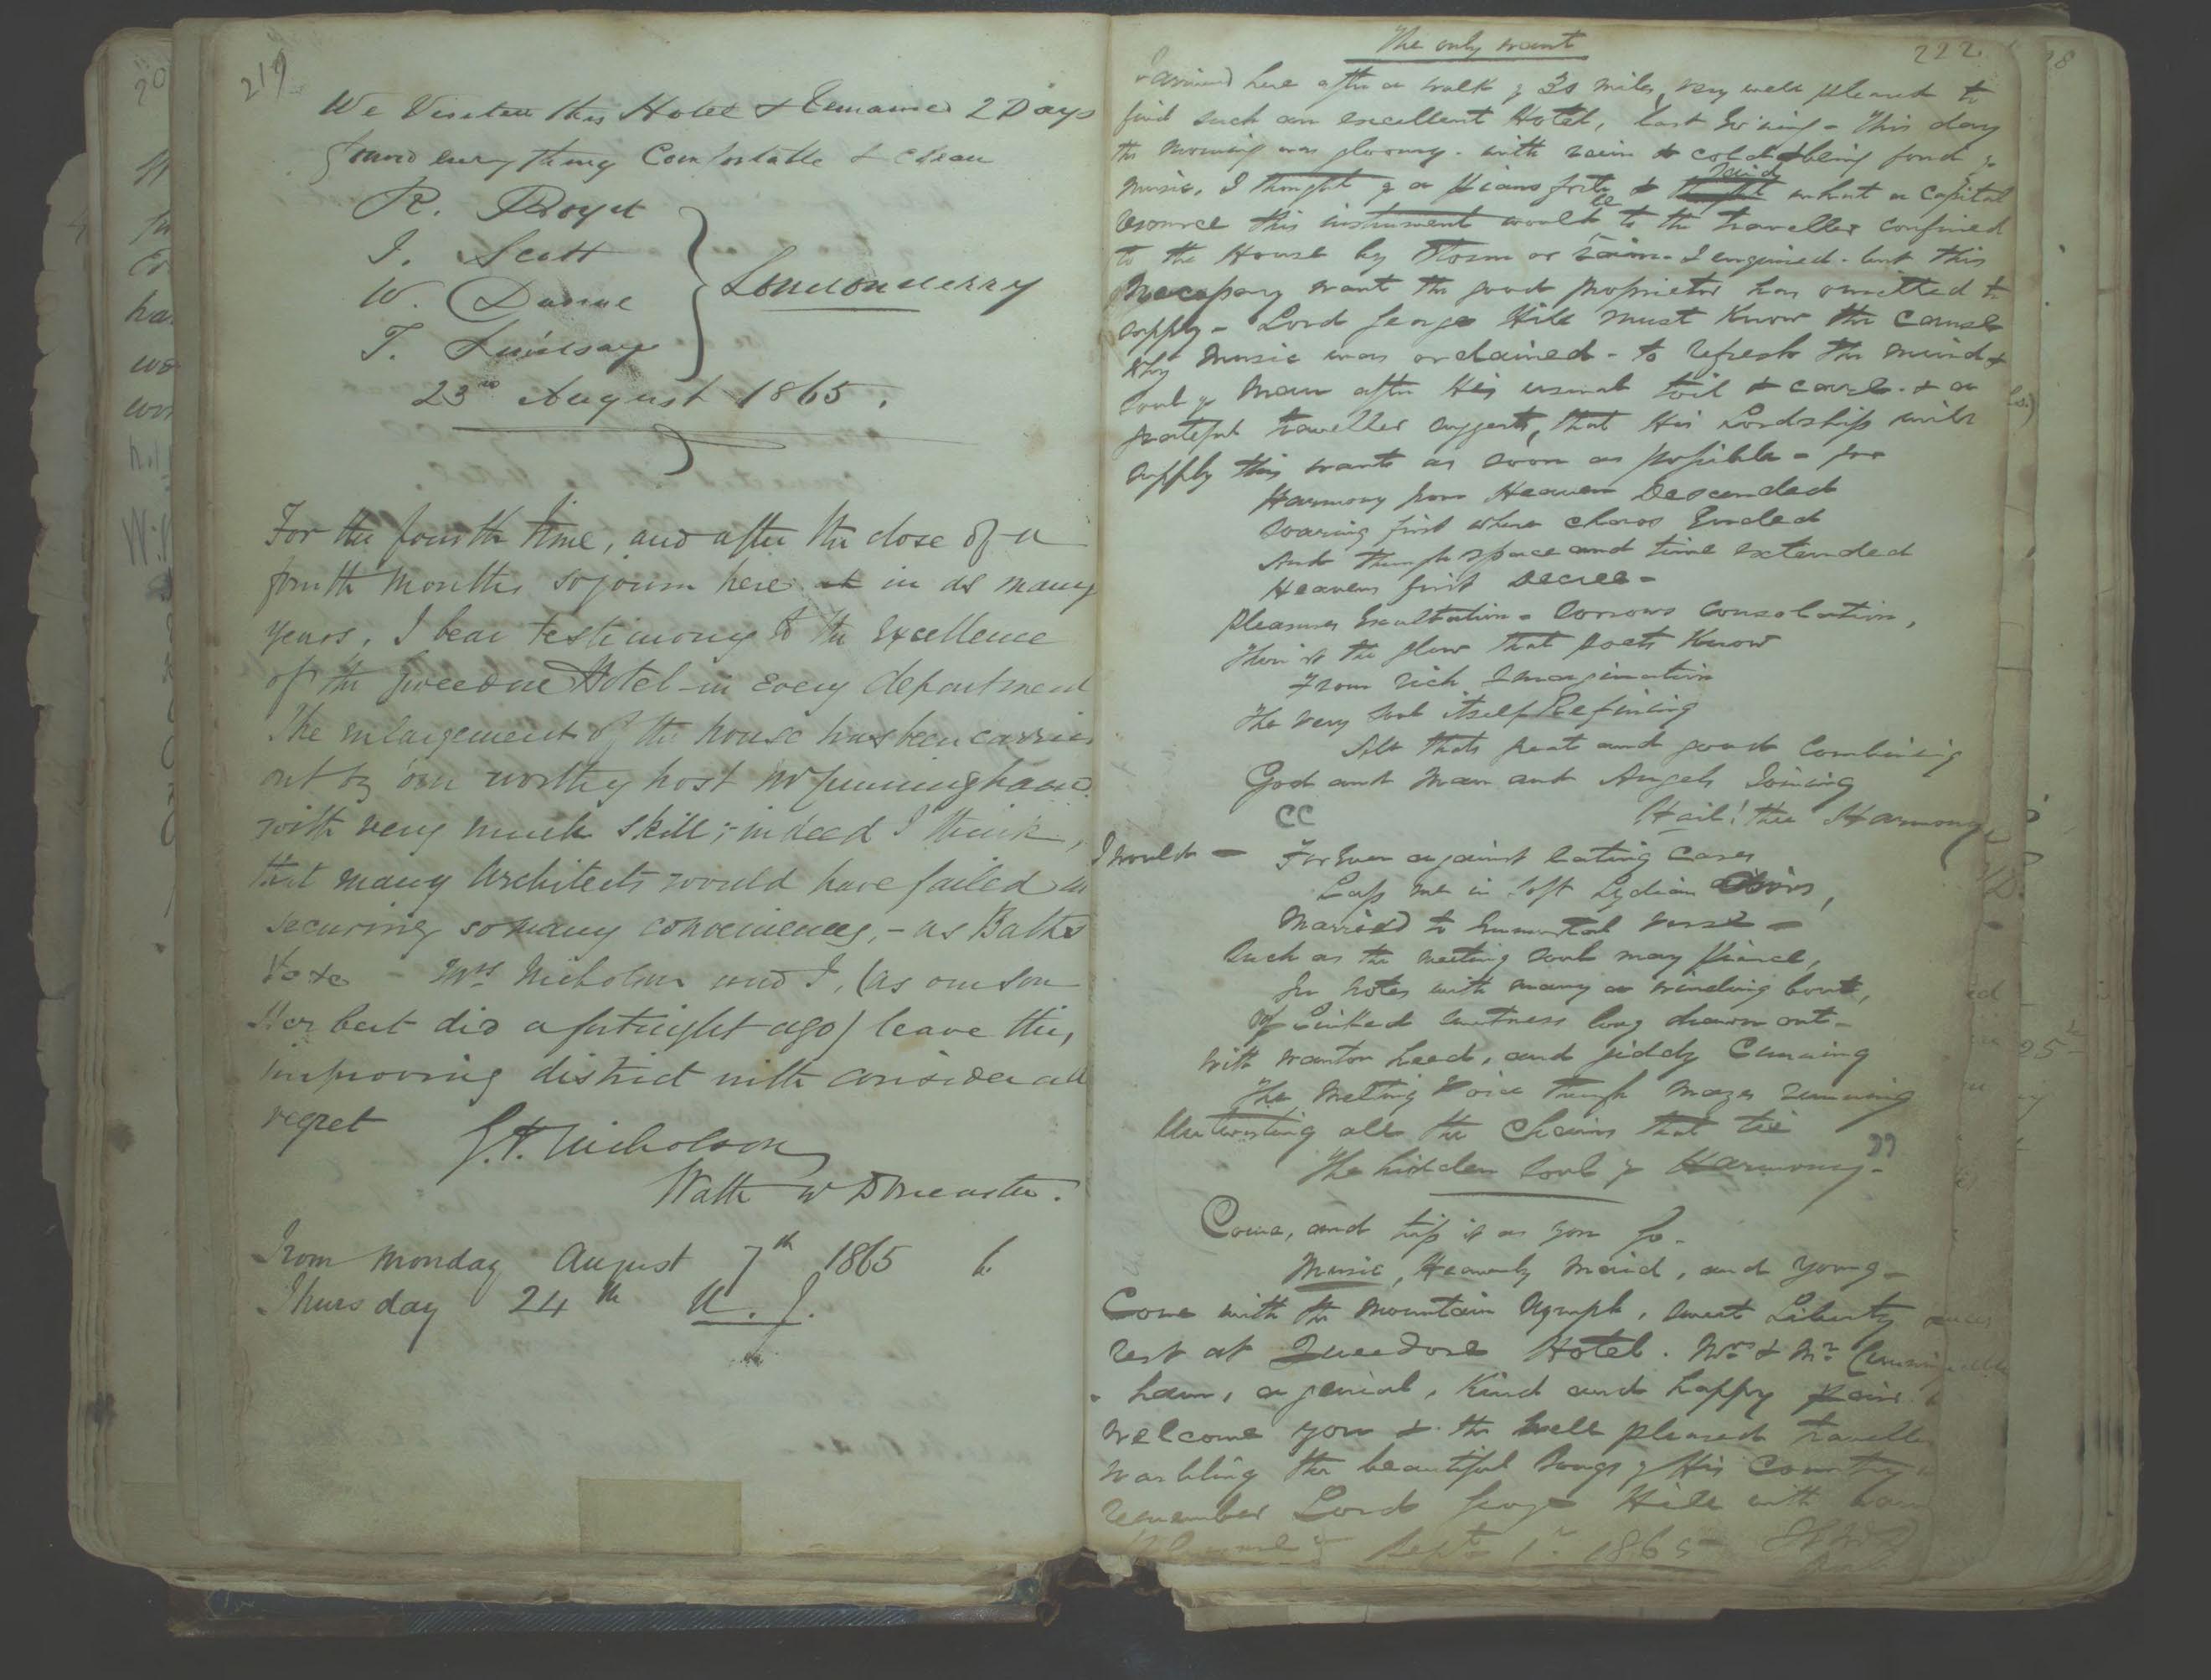 219
We Visited this Hotel & Remained 2 Days
found every thing Comfortable & Clean
R.
J. Scott
W.
T. Lindsay
Londonderry
23rd August 1865.
For the fourth time, and after the close of a
fourth months sojourn here in as many
years, I bear testimony to the excellence
of the Gweedore Hotel in every department
The enlargement of the house has been carried
out by our worthy host Mr Cunningham
with very much skill; indeed I think,
that many Architects would have failed in
securing so many conveniences, - as Baths
&c &c - Mrs Nicholson and I, (as our son
Herbert did a fortnight ago) leave this,
improving district with considerable
regret
Nicholson
Wath
From Monday August 7th 1865 to
Thursday 24th
The only want
222
I arrived here after a walk of miles, very well pleased to
find such an excellent Hotel, last Ev'ning - This day
the morning was gloomy. with rain & cold & being fond of
music, I thought of a Piano forte & said what a capital
resource this instrument would be to the traveller confined
to the House by Storm or rain - I enquired - but this
Necessary want the good proprietor has omitted to
supply - Lord George Hill must Know the cause
Why Music was ordained - to refresh the mind &
soul of Man after His usual toil & care - & a
grateful traveller suggests, that His Lordship will
supply this want as soon as possible - for
Harmony from Heaven Descended
Soaring first where chaos Ended
And through space and time extended
Heavens first Decree -
Pleasures Exaltation - Sorrows Consolation,
Thou'rt the glow that poets Know
From rich Imagination
The very Soul itself Refining
All thats great and good Combining
God and Man and Angels Joining
Hail! thee Harmony
I would - For Ever against Eating Cares
Lap me in soft Lydian Airs,
Married to Immortal verse -
Such as the meeting soul may pierce,
In notes with many a winding bout,
Of Linked sweetness long drawn out -
With wanton heed, and giddy Cunning
The Melting Voice through Mazes running
Untwisting all the Chains that tie
The hidden soul of Harmony. "
Come, and trip it as you go -
Music, Heavenly Maid, and Young -
Come with the Mountain Nymph, sweet Liberty
rest at Gweedore Hotel. Mrs & Mr Cunning
- ham, a genial, Kind and happy pair
welcome you & the well pleased traveller
warbling the beautiful Songs of His Country
remember Lord George Hill with
Septr 1st 1865